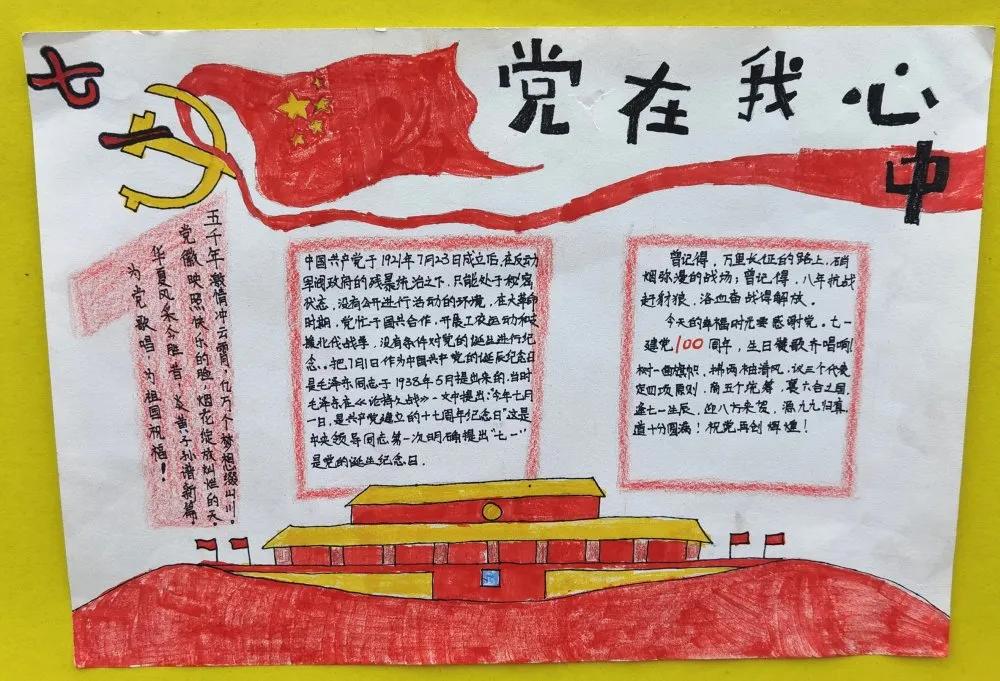 七一
党在我心中
五千年激情冲云霄,亿万个梦想缀山川。
党徽映照快乐的脸,烟花绽放灿烂的天。
华夏风采今胜昔,炎黄子孙谱新篇,
为党歌唱,为祖国祝福!
中国共产党于1921年7月23日成立后,在反动
军阀政府的残暴统治之下,只能处于秘密
状态,没有公开进行活动的环境,在大革命
时期,党忙于国共合作,开展工农运动和支
援北伐战争,没有条件对党的诞生进行纪
念。把7月1日作为中国共产党的诞辰纪念日
是毛泽东同志于1938年5月提出来的,当时
毛泽东在《论持久战》一文中提出:"今年七月
一日,是共产党建立的十七周年纪念日"这是
中央领导同志第一次明确提出"七一"
是党的诞生纪念日.
曾记得,万里长征的路上,硝
烟弥漫的战场;曾记得,八年抗战
赶豺狼,浴血奋战得解放。
今天的幸福时光要感谢党。七一
建党100周年,生日赞歌齐唱响!
树一面旗帜,拂两袖清风,议三个代表
定四项原则,商五个统筹,冀六合之国,
逢七一生辰,迎八方来贺,源九九归真,
道十分圆满!祝党再创辉煌!